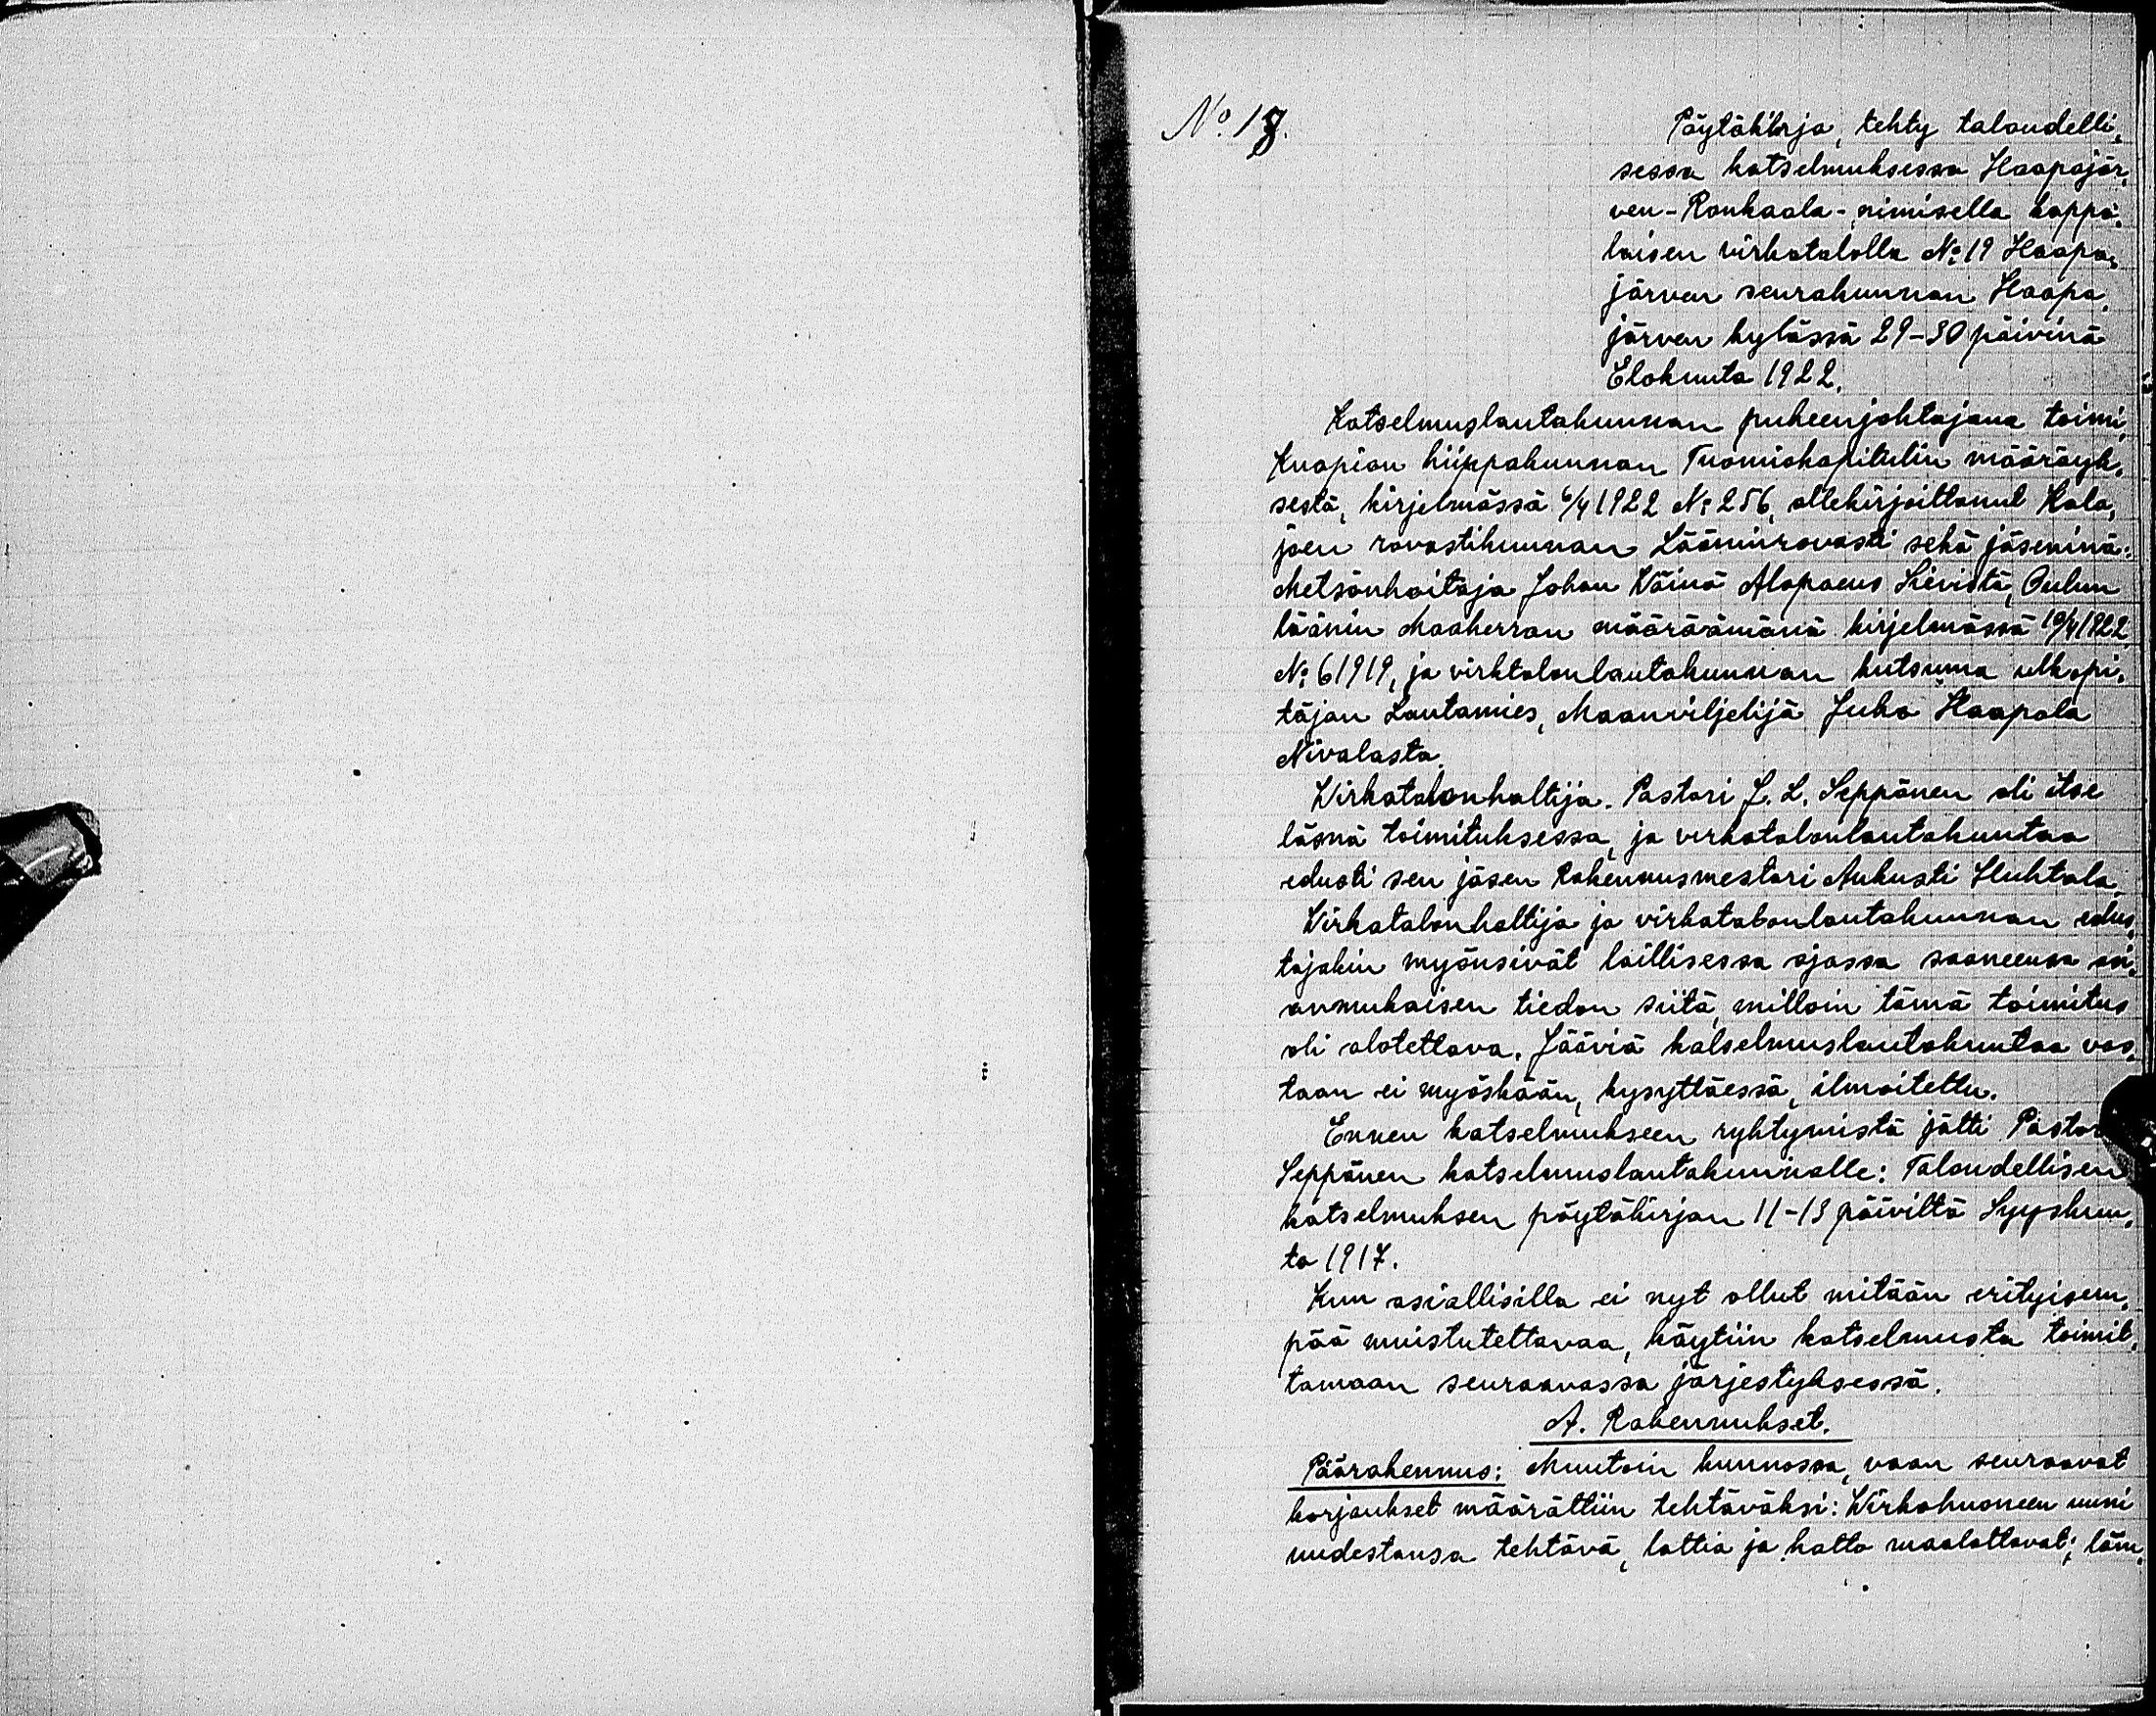 No. 18.
Pöytäkirja, tehty taloudelli,
sessa katselmuksessa Haapajär,
ven-Ronkaala-nimisellä kappa,
laisen virkatalolla No: 19 Haapa,
järven seurakunnan Haapa,
järven kylässä 29-30 päivinä
Elokuuta 1922.
Katselmuslautakunnan puheenjohtajana toimi,
Kuopion hiippakunnan Tuomiokapitulin määräyk,
sestä, kirjelmässä 6/4 1922 No: 256, allekirjoittanut Kala,
joen rovastikunnan Lääninrovasti sekä jäseninä:
Metsänhoitaja Johan Wäinö Alopaeus Sievistä, Oulun
läänin Maaherran määräämänä kirjelmässä 19/4 1922
No: 61919, ja virktalonlautakunnan kutsuma ulkopi,
täjän Lautamies, Maanviljelijä Juho Haapala
Nivalasta.
Wirkatalonhaltija. Pastori J. L. Seppänen oli itse
läsnä toimituksessa, ja virkatalonlautakuntaa
edusti sen jäsen Rakennusmestari Aukusti Huhtala.
Wirkatalonhaltija ja virkatalonlautakunnan edus,
tajakin myönsivät laillisessa ajassa saaneensa asi,
anmukaisen tiedon siitä, milloin tämä toimitus
oli alotettava. Jääviä katselmuslautakuntaa vas,
taan ei myöskään, kysyttäessä, ilmoitettu.
Ennen katselmukseen ryhtymistä jätti Pastor
Seppänen katselmuslautakunnalle: Taloudellisen
katselmuksen pöytäkirjan 11-13 päiviltä Syyskuu,
ta 1917.
Kun asiallisilla ei nyt ollut mitään erityisem,
pää muistutettavaa, käytiin katselmusta toimit,
tamaan seuraavassa järjestyksessä.
A. Rakennukset.
Päärakennus: Muutoin kunnossa, vaan seuraavat
korjaukset määrättiin tehtäväksi: Wirkahuoneen uuni
uudestansa tehtävä, lattia ja katto maalattavat; läm,